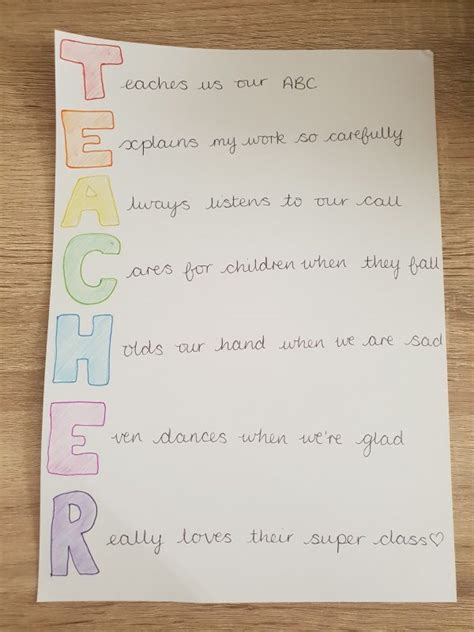 Teaches us our ABC
Explains my work so carefully
Always listens to our call
Cares for children when they fall
Holds our hand when we are sad
Even dances when we're glad
Really loves their super class♡